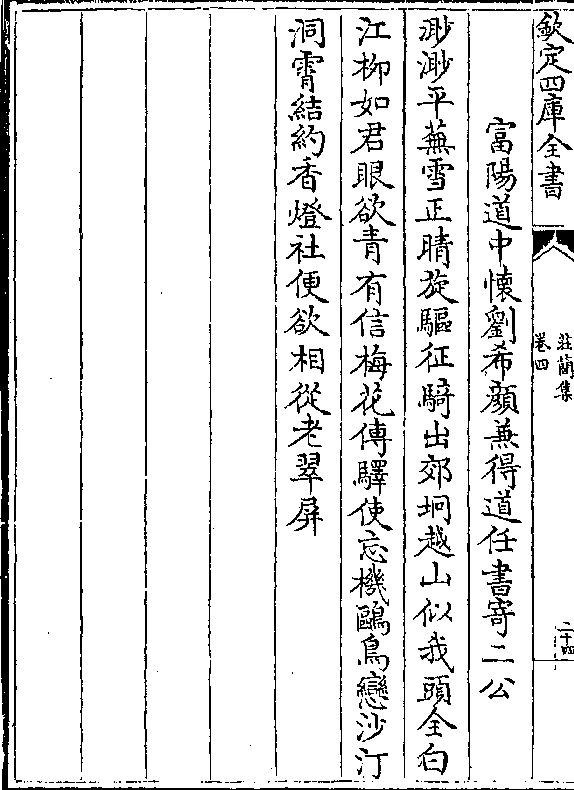 欽定四庫全書
莊簡集
卷四
二十四
富陽道中懷劉希顔兼得道任書寄二公
渺渺平蕪雪正晴旋驅征騎出郊坰越山似我頭全白
江柳如君眼欲青有信梅花傳驛使忘機鷗鳥戀沙汀
洞霄結約香燈社便欲相從老翠屏